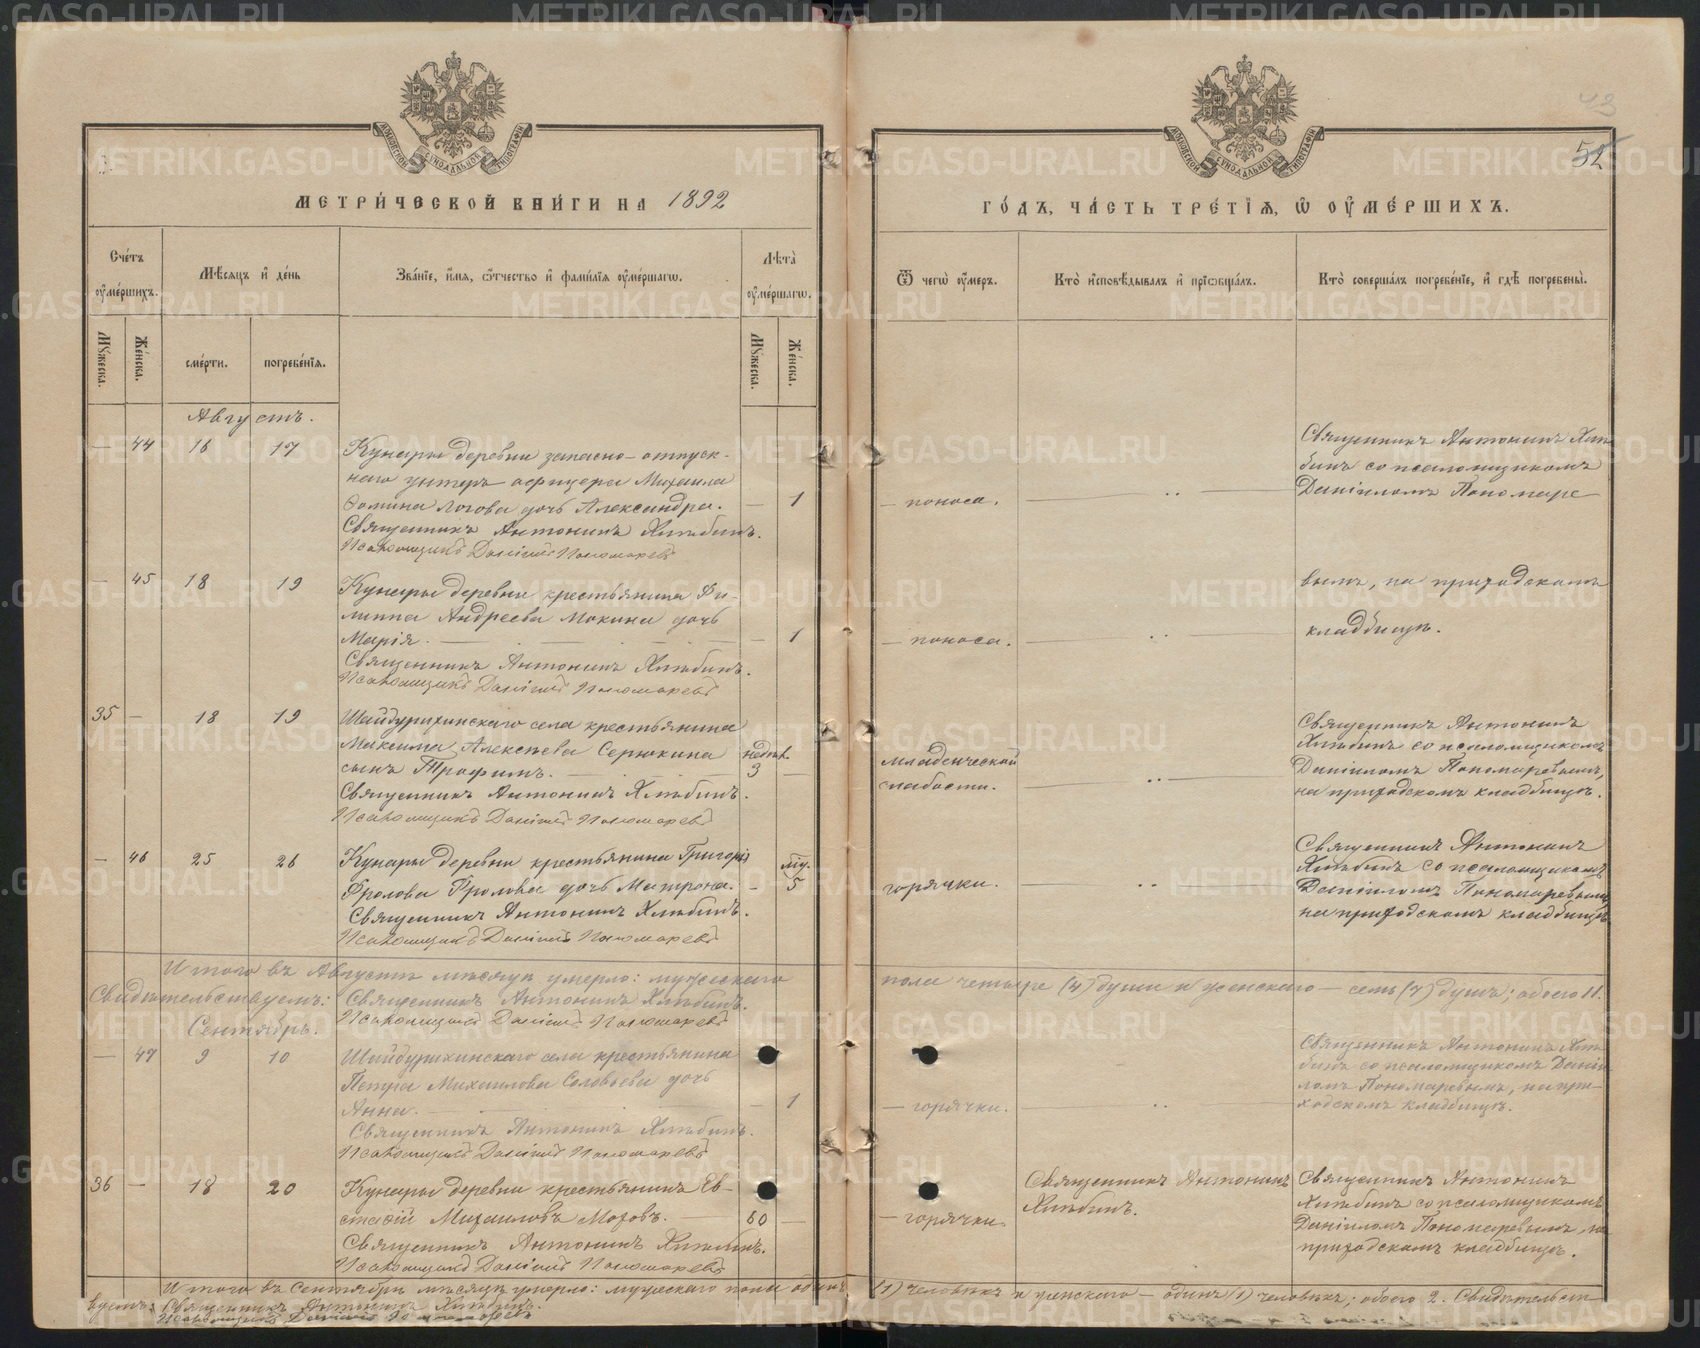 43
52
МЕТРИ́ЧЕСКОЙ КНИ́ГИ НА 1892
ГО́ДЪ, ЧА́СТЬ ТРЕ́ТІѦ, Ѡ ОУ҆МЕ́РШИХЪ.
Сче́тъ оу҆ме́ршихъ.
Мѣ́сяцъ и҆ де́нь
Зва́нїе, и҆́мѧ, ѻ҆́тчество и҆ фами́лїѧ оу҆ме́ршагѡ.
Лѣ́та оу҆ме́ршагѡ.
Ѿ чегѡ̀ оу҆́меръ.
Кто̀ и҆сповѣ́дывалъ и҆ прїѡбща́лъ.
Кто̀ соверша́лъ погребе́нїе, и҆ гдѣ̀ погребены̀.
Му́жеска.
Же́нска.
сме́рти.
погребе́нїѧ.
Му́жеска.
Же́нска.
Августъ.
— 44 16 17 Кунары деревни запасно-отпуск-
наго унтеръ офицера Михаила
Фомина Логова дочь Александра. — 1
Священникъ Антонинъ Хлѣбинъ.
Псаломщикъ Даніилъ Пономаревъ
— поноса.
Священникъ Антонинъ Хлѣ-
бинъ со псаломщикомъ
Даніиломъ Пономаре-
— 45 18 19 Кунары деревни крестьянина Фи-
липпа Андреева Мокина дочь
Марія. — 1
Священникъ Антонинъ Хлѣбинъ.
Псаломщикъ Даніилъ Пономаревъ
— поноса.
вымъ, на приходскомъ
кладбищѣ.
35 — 18 19 Шайдурихинскаго села крестьянина
Максима Алексѣева Серюкина недѣл.
сынъ Трофимъ. 3 —
Священникъ Антонинъ Хлѣбинъ.
Псаломщикъ Даніилъ Пономаревъ
младенческой
слабости.
Священникъ Антонинъ
Хлѣбинъ со псаломщикомъ
Даніиломъ Пономаревымъ,
на приходскомъ кладбищѣ.
— 46 25 26 Кунары деревни крестьянина Григорія
Фролова Фролова дочь Матрона. — 5
Священникъ Антонинъ Хлѣбинъ.
Псаломщикъ Даніилъ Пономаревъ
горячки.
Священникъ Антонинъ
Хлѣбинъ со псаломщикомъ
Даніиломъ Пономаревымъ,
на приходскомъ кладбищѣ.
Итого въ Августѣ мѣсяцѣ умерло: мужескаго
пола четыре (4) души и женскаго — семь (7) душъ; обоего 11.
Свидѣтельствуемъ: Священникъ Антонинъ Хлѣбинъ.
Псаломщикъ Даніилъ Пономаревъ
Сентябрь.
— 47 9 10 Шайдурихинскаго села крестьянина
Петра Михаилова Соловьева дочь
Анна. — 1
Священникъ Антонинъ Хлѣбинъ.
Псаломщикъ Даніилъ Пономаревъ
— горячки.
Священникъ Антонинъ Хлѣ-
бинъ со псаломщикомъ Даніи-
ломъ Пономаревымъ, на при-
ходскомъ кладбищѣ.
36 — 18 20 Кунары деревни крестьянинъ Ев-
стафій Михаиловъ Моховъ. 60 —
Священникъ Антонинъ Хлѣбинъ.
Псаломщикъ Даніилъ Пономаревъ
— горячки.
Священникъ Антонинъ
Хлѣбинъ.
Священникъ Антонинъ
Хлѣбинъ со псаломщикомъ
Даніиломъ Пономаревымъ, на
приходскомъ кладбищѣ.
Итого въ Сентябрѣ мѣсяцѣ умерло: мужескаго пола одинъ
(1) человѣкъ и женскаго — одинъ (1) человѣкъ; обоего 2. Свидѣтельст-
вуемъ: Священникъ Антонинъ Хлѣбинъ.
Псаломщикъ Даніилъ Пономаревъ
METRIKI.GASO-URAL.RU